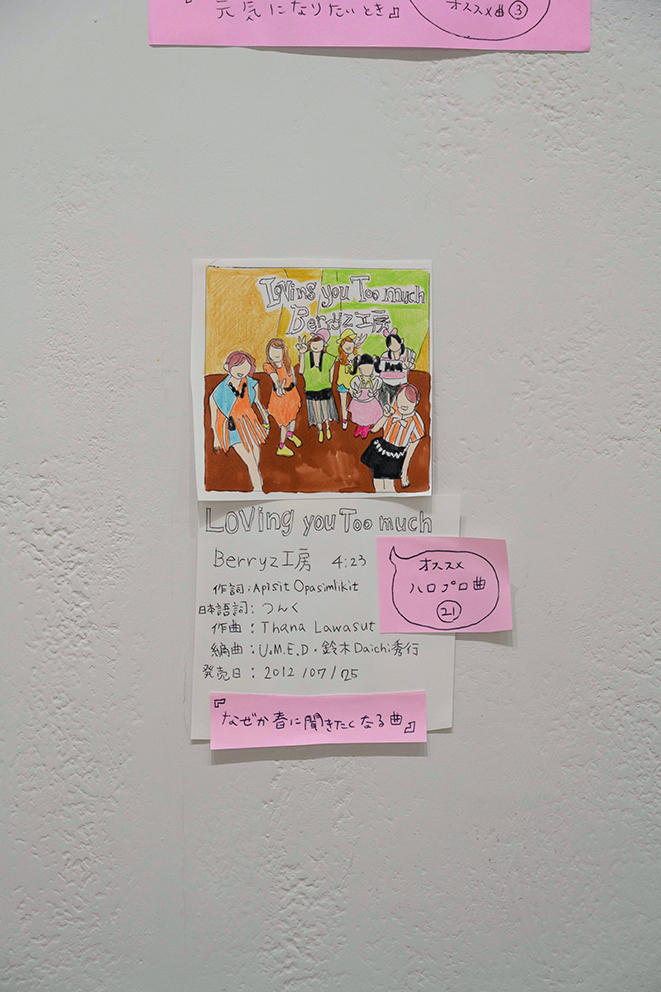 『元気になりたいとき』
オススメ曲③
Loving you Too much
Berryz工房
Loving you Too much
Berryz工房 4:23
オススメ
ハロプロ曲
㉑
作詞:Apisit Opasimlikit
日本語詞:つんく
作曲:Thana Lawasut
編曲:U.M.E.D・鈴木Daichi秀行
発売日:2012/07/25
『なぜか春に聞きたくなる曲』